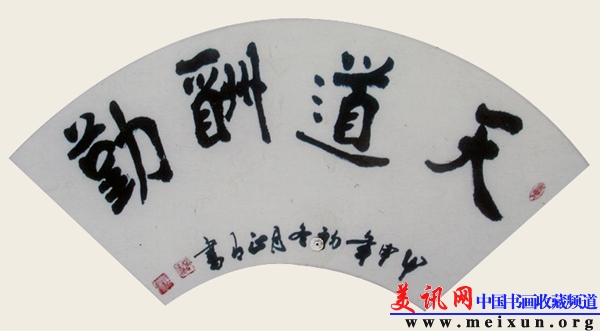 天道酬勤
申年初冬月正書
美讯网 中国书画收藏频道
www.meixun.org